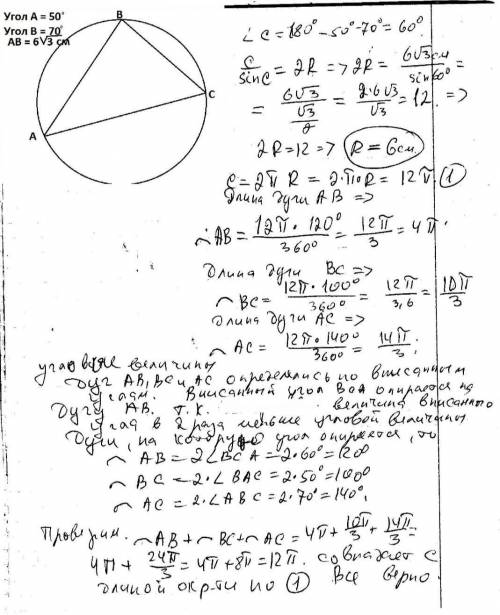 Угол A = 50°
Угол B = 70°
AB = 6√3 см
B
C
A
∠C = 180° - 50° - 70° = 60°
c/sinC = 2R => 2R = 6√3см/sin60° =
= 6√3/(√3/2) = 2·6√3/√3 = 12 =>
2R = 12 => R = 6см.
C = 2π R = 2·π·R = 12π. ①
Длина дуги AB =>
◠AB = 12π · 120°/360° = 12π/3 = 4π.
Длина дуги BC =>
◠BC = 12π · 100°/360° = 12π/3,6 = 10π/3
Длина дуги AC =>
◠AC = 12π · 140°/360° = 14π/3.
угловые величины
Дуг AB, BC и AC определялись по вписанным
углам. Вписанный угол BCA опирается на
Дугу AB. т.к. величина вписанного
угла в 2 раза меньше угловой величины
Дуги, на которую угол опирается, то
◠AB = 2∠BCA = 2·60° = 120°
◠BC = 2·∠BAC = 2·50° = 100°
◠AC = 2·∠ABC = 2·70° = 140°.
Проверим. ◠AB + ◠BC + ◠AC = 4π + 10π/3 + 14π/3 =
4π + 24π/3 = 4π + 8π = 12π. совпадает с
длиной окр-ти по ① Все верно.